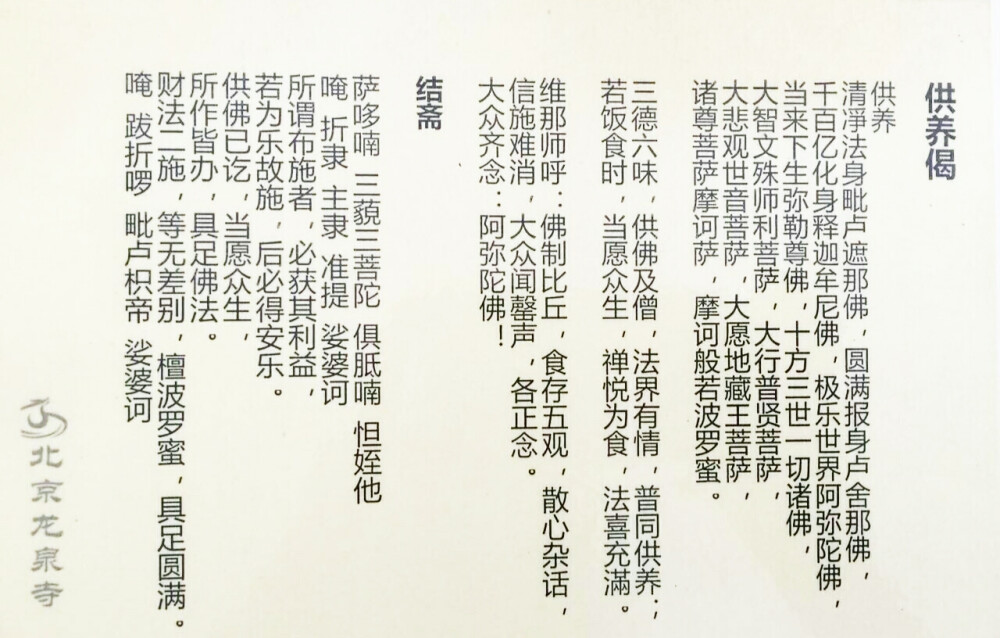 供养偈
供养
清凈法身毗卢遮那佛，圆满报身卢舍那佛，
千百亿化身释迦牟尼佛，极乐世界阿弥陀佛，
当来下生弥勒尊佛，十方三世一切诸佛，
大智文殊师利菩萨，大行普贤菩萨，
大悲观世音菩萨，大愿地藏王菩萨，
诸尊菩萨摩诃萨，摩诃般若波罗蜜。
三德六味，供佛及僧，法界有情，普同供养；
若饭食时，当愿众生，禅悦为食，法喜充滿。
维那师呼：佛制比丘，食存五观，散心杂话，
信施难消，大众闻罄声，各正念。
大众齐念：阿弥陀佛！
结斋
萨哆喃 三藐三菩陀 俱胝喃 怛姪他
唵 折隶 主隶 准提 娑婆诃
所谓布施者，必获其利益，
若为乐故施，后必得安乐。
供佛已讫，当愿众生，
所作皆办，具足佛法。
财法二施，等无差别，檀波罗蜜，具足圆满。
唵 跋折啰 毗卢枳帝 娑婆诃
北京龙泉寺